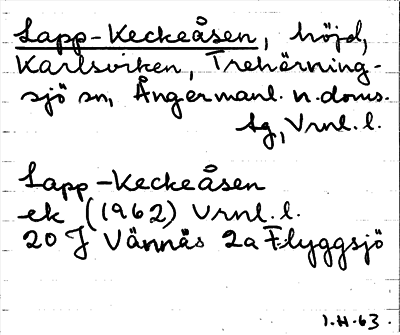 Lapp-Keckeåsen, höjd,
Karlsviken, Trehörning-
sjö sn, Ångermanl. n. doms.
sg, Vrnl. l.
Lapp-Keckeåsen
ek (1962) Vrnl. l.
20 J Vännäs 2a Flyggsjö
1.H.63.